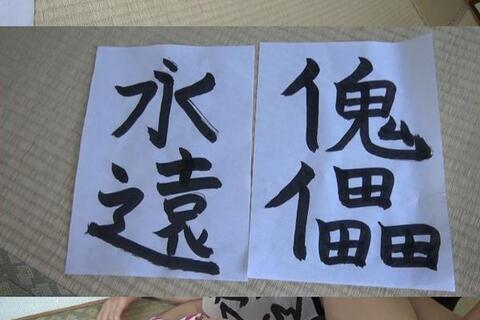 傀儡
永遠